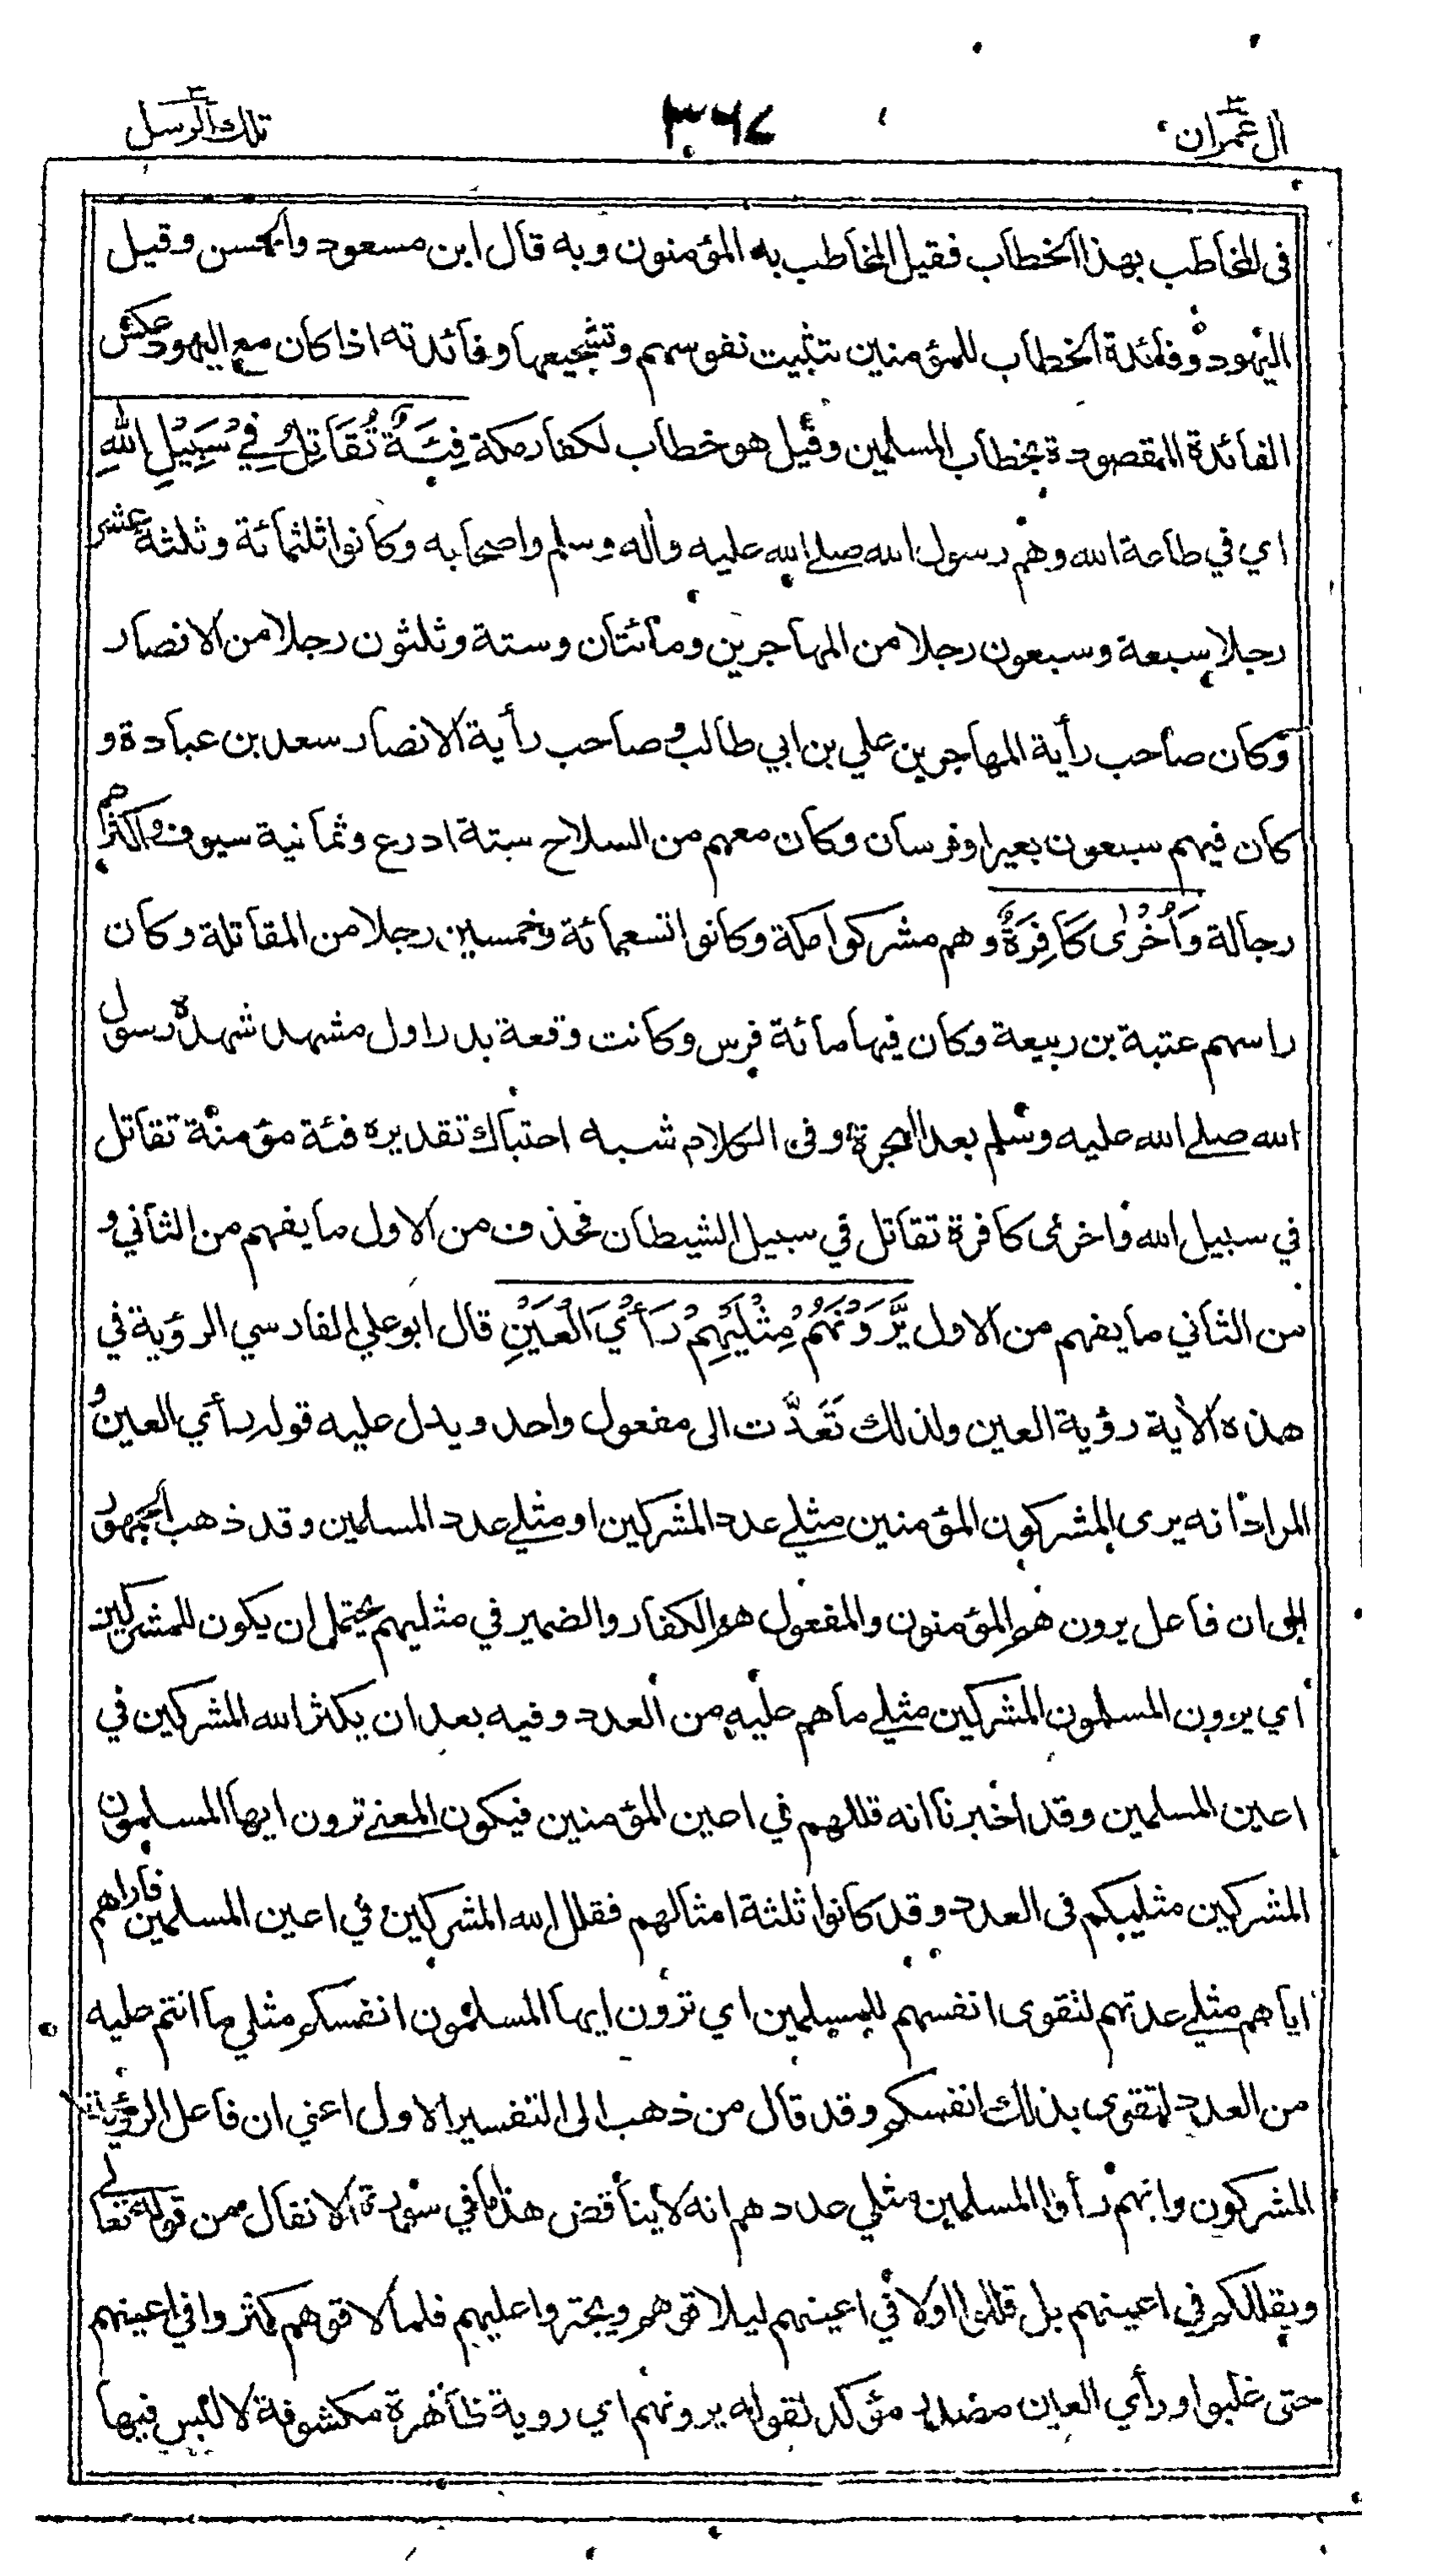 ال عمران ٣
٣٦٧
تلك الرسل ٣
فى المخاطب بهذا الخطاب فقيل المخاطب به المؤمنون وبه قال ابن مسعود والحسن وقيل
اليهود وفائدة الخطاب للمؤمنين تثبيت نفوسهم وتشجيعها وفائدته اذا كان مع اليهود عكس
الفائدة المقصودة بخطاب المسلمين وقيل هو خطاب لكفار مكة فِئَةٌ تُقَاتِلُ فِي سَبِيْلِ اللهِ
اي في طاعة الله وهم رسول الله صلے الله عليه واله وسلم واصحابه وكانوا ثلثمائة وثلثة عشر
رجلا سبعة وسبعون رجلا من المهاجرين ومائتان وستة وثلثون رجلا من الانصار
وكان صاحب رأية المهاجرين علي بن ابي طالب وصاحب رأية الانصار سعد بن عبادة و
كان فيهم سبعون بعيرا وفرسان وكان معهم من السلاح ستة ادرع وثمانية سيوف واكثرهم
رجالة وَأُخْرٰى كَافِرَةٌ وهم مشركوا مكة وكانوا تسعمائة وخمسين رجلا من المقاتلة وكان
راسهم عتبة بن ربيعة وكان فيها مائة فرس وكانت وقعة بدر اول مشهد شهده رسول
الله صلے الله عليه وسلم بعد الهجرة وفى الكلام شبه احتباك تقديره فئة مؤمنة تقاتل
في سبيل الله واخرى كافرة تقاتل في سبيل الشيطان فحذف من الاول ما يفهم من الثاني و
من الثاني ما يفهم من الاول يَّرَوْنَهُمْ مِثْلَيْهِمْ رَأْيَ الْعَيْنِ قال ابو علي الفارسي الرؤية في
هذه الأية رؤية العين ولذلك تَعَدَّت الى مفعول واحد ويدل عليه قوله رأي العين و
المراد انه يرى المشركون المؤمنين مثلے عدد المشركين او مثلے عدد المسلمين وقد ذهب الجمهور
الى ان فاعل يرون هم المؤمنون والمفعول هم الكفار والضمير في مثليهم يحتمل ان يكون للمشركين
اي يرون المسلمون المشركين مثلے ما هم عليه من العدد وفيه بعد ان يكثر الله المشركين في
اعين المسلمين وقد اخبرنا انه قللهم في اعين المؤمنين فيكون المعنے ترون ايها المسلمون
المشركين مثليكم فى العدد وقد كانوا ثلثة امثالهم فقلل الله المشركين في اعين المسلمين فاراهم
اياهم مثلے عدتهم لتقوى انفسهم للمسلمين اي ترون ايها المسلمون انفسكم مثلي ما انتم عليه
من العدد لتقوى بذلك انفسكم وقد قال من ذهب الى التفسير الاول اعني ان فاعل الرؤية
المشركون وانهم رأوا المسلمين مثلي عددهم انه لا يناقض هذا ما في سورة الانفال من قوله تعالے
ويقللكم في اعينهم بل قللوا اولا في اعينهم ليلاقوهم ويجتروا عليهم فلما لاقوهم كثروا في اعينهم
حتى غلبوا ورأي العين مصدر مؤكد لقوله يرونهم اي روية ظاهرة مكشوفة لا لبس فيها